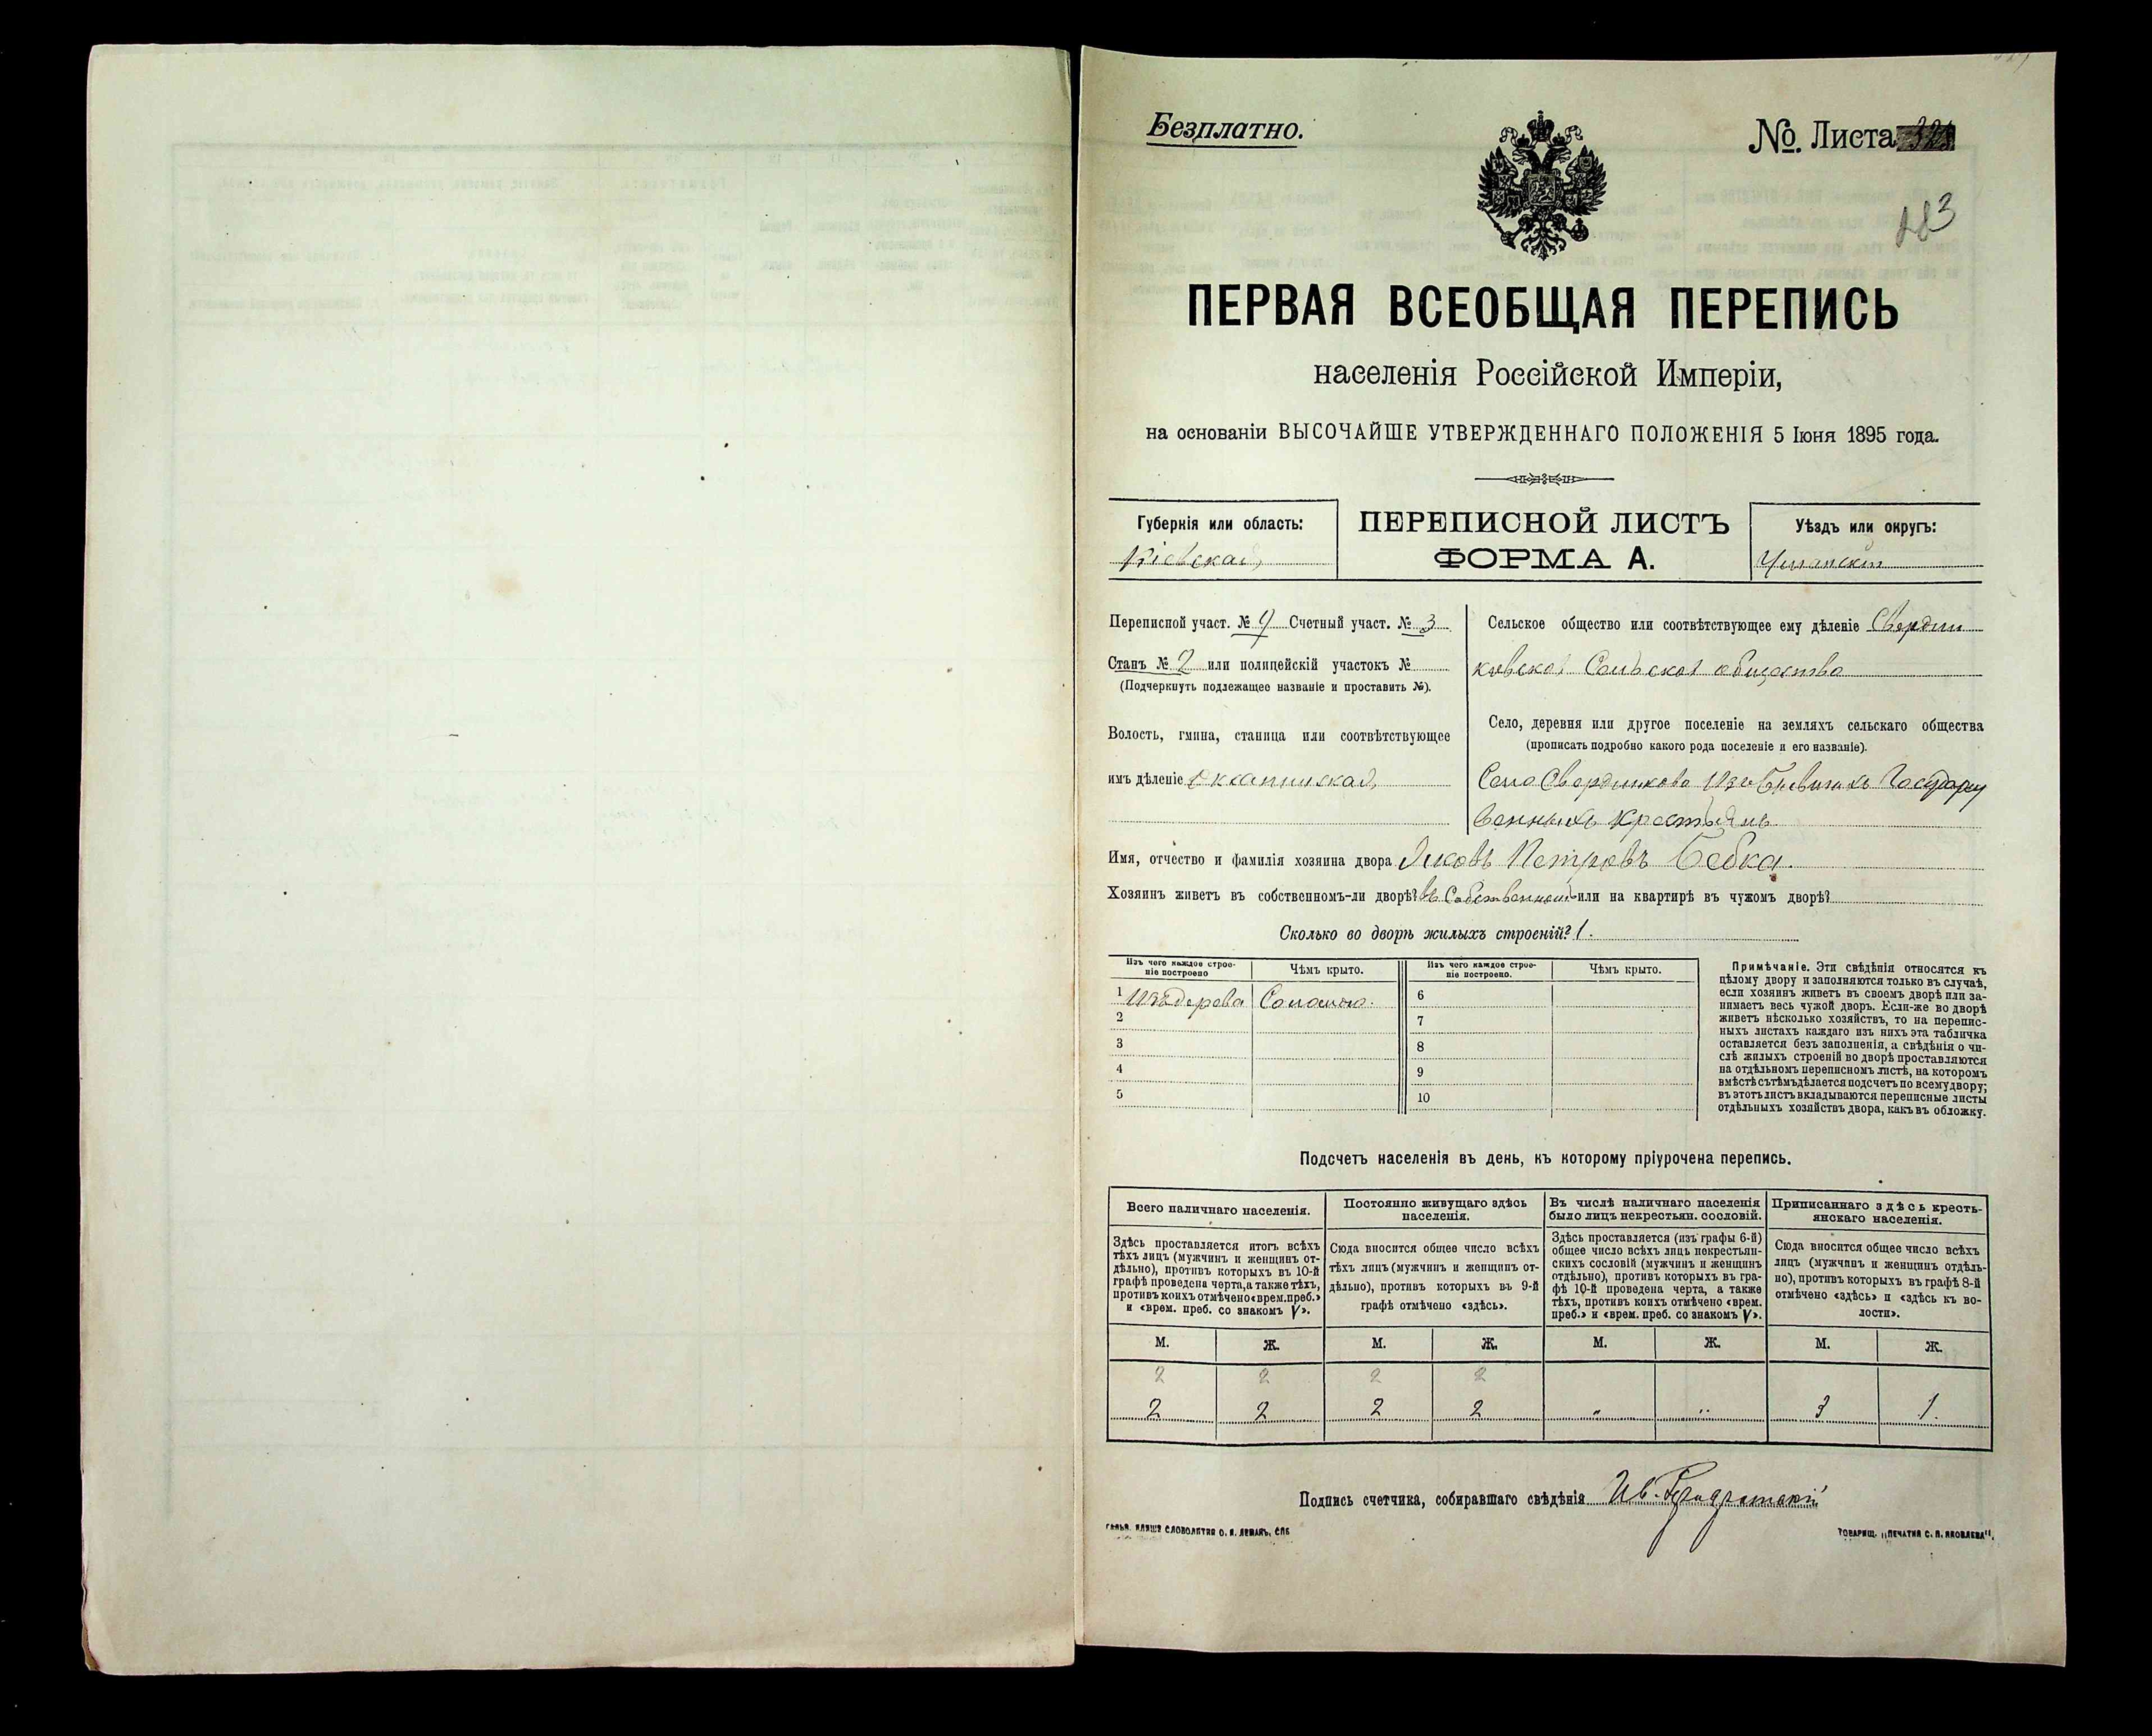 Безплатно.
№. Листа
183
ПЕРВАЯ ВСЕОБЩАЯ ПЕРЕПИСЬ
населенія Россійской Имперіи,
на основаніи ВЫСОЧАЙШЕ УТВЕРЖДЕННАГО ПОЛОЖЕНІЯ 5 Іюня 1895 года.
Губернія или область:
Кіевская
ПЕРЕПИСНОЙ ЛИСТЪ
ФОРМА А.
Уѣздъ или округъ:
Уманскій
Переписной участ. № 9 Счетный участ. № 3
Станъ № 2 или полицейскій участокъ №
(Подчеркнуть подлежащее названіе и проставить №).
Волость, гмина, станица или соотвѣтствующее
имъ дѣленіе
Сельское общество или соотвѣтствующее ему дѣленіе Свердли
ковское Сельское общество
Село, деревня или другое поселеніе на земляхъ сельскаго общества
(прописать подробно какого рода поселеніе и его названіе).
Село Свердликово Изъ Бывшихъ Государст
венныхъ крестьянъ
Имя, отчество и фамилія хозяина двора Яковъ Петровъ Бебка.
Хозяинъ живетъ въ собственномъ-ли дворѣ? въ Собственномъ или на квартирѣ въ чужомъ дворѣ?
Сколько во дворѣ жилыхъ строеній? 1.
Изъ чего каждое строе-
ніе построено
Чѣмъ крыто.
1 Изъ дерева Соломою.
2
3
4
5
Изъ чего каждое строе-
ніе построено.
Чѣмъ крыто.
6
7
8
9
10
Примѣчаніе. Эти свѣдѣнія относятся къ
цѣлому двору и заполняются только въ случаѣ,
если хозяинъ живетъ въ своемъ дворѣ или за-
нимаетъ весь чужой дворъ. Если-же во дворѣ
живетъ нѣсколько хозяйствъ, то на перепис-
ныхъ листахъ каждаго изъ нихъ эта табличка
оставляется безъ заполненія, а свѣдѣнія о чи-
слѣ жилыхъ строеній во дворѣ проставляются
на отдѣльномъ переписномъ листѣ, на которомъ
вмѣстѣ съ тѣмъ дѣлается подсчетъ по всему двору;
въ этотъ листъ вкладываются переписные листы
отдѣльныхъ хозяйствъ двора, какъ въ обложку.
Подсчетъ населенія въ день, къ которому пріурочена перепись.
Всего наличнаго населенія.
Здѣсь проставляется итогъ всѣхъ
тѣхъ лицъ (мужчинъ и женщинъ от-
дѣльно), противъ которыхъ въ 10-й
графѣ проведена черта, а также тѣхъ,
противъ коихъ отмѣчено «врем. преб.»
и «врем. преб. со знакомъ V».
Постоянно живущаго здѣсь
населенія.
Сюда вносится общее число всѣхъ
тѣхъ лицъ (мужчинъ и женщинъ от-
дѣльно), противъ которыхъ въ 9-й
графѣ отмѣчено «здѣсь».
Въ числѣ наличнаго населенія
было лицъ некрестьян. сословій.
Здѣсь проставляется (изъ графы 6-й)
общее число всѣхъ лицъ некрестьян-
скихъ сословій (мужчинъ и женщинъ
отдѣльно), противъ которыхъ въ гра-
фѣ 10-й проведена черта, а также
тѣхъ, противъ коихъ отмѣчено «врем.
преб.» и «врем. преб. со знакомъ V».
Приписаннаго здѣсь кресть-
янскаго населенія.
Сюда вносится общее число всѣхъ
лицъ (мужчинъ и женщинъ отдѣль-
но), противъ которыхъ въ графѣ 8-й
отмѣчено «здѣсь» и «здѣсь къ во-
лости».
М. Ж. М. Ж. М. Ж. М. Ж.
2 2 2 2
2 2 2 2 " " 3 1.
Подпись счетчика, собиравшаго свѣдѣнія Ив.
СЛОВОЛИТНЯ О. И. ЛЕМАНЪ, СПБ
ТОВАРИЩ. „ПЕЧАТНЯ С. П. ЯКОВЛЕВА“.